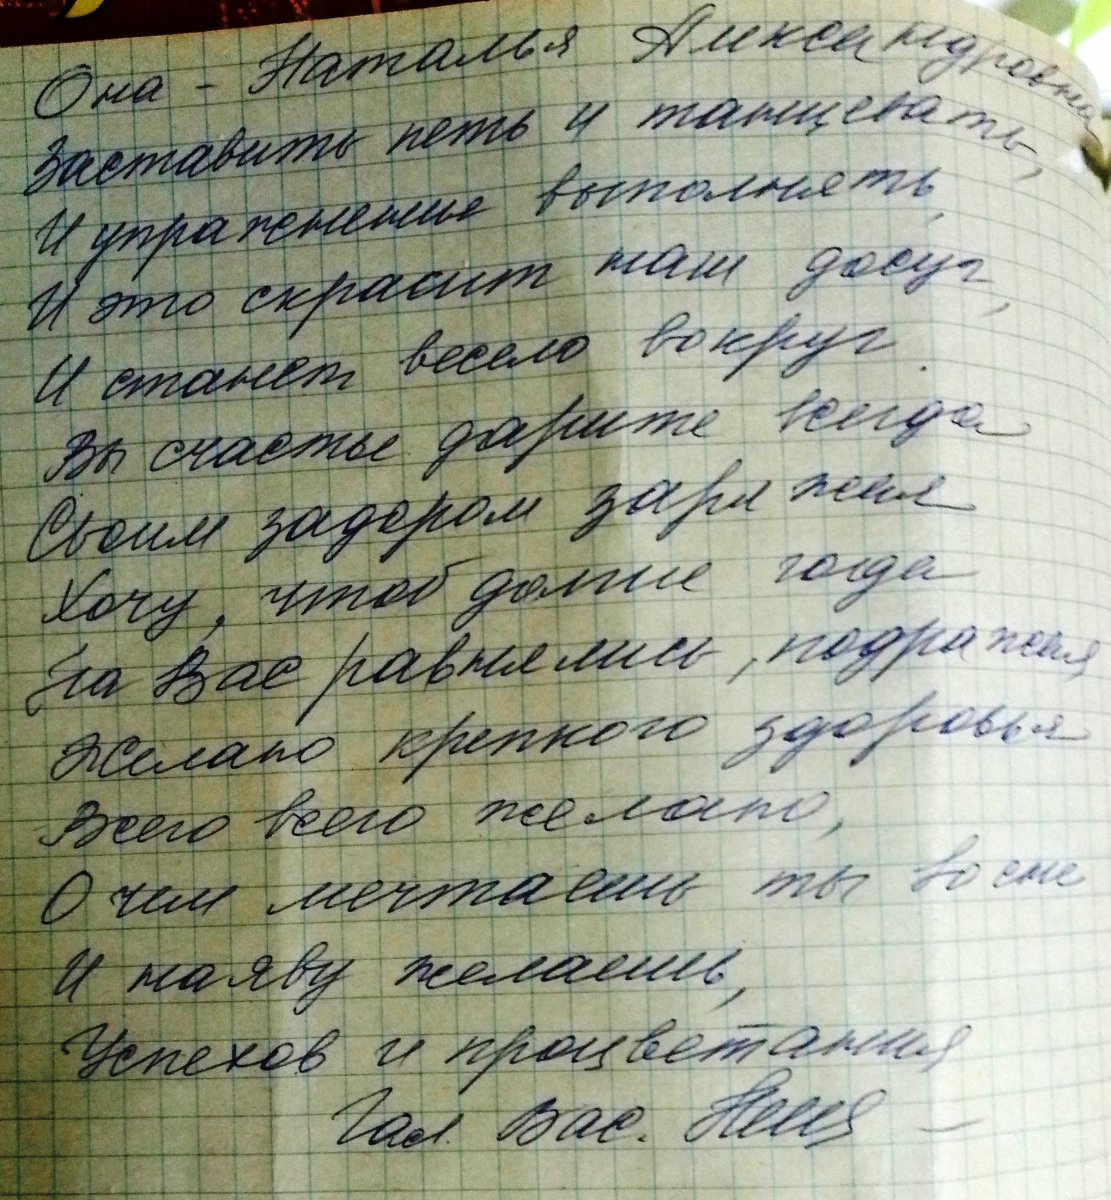 Она - Наталья Александровна
Заставить петь и танцевать,
И упражнение выполнять,
И это скрасит наш досуг,
И станет весело вокруг.
Вы счастье дарите всегда
Своим задором заряжая
Хочу, чтоб долгие года
На Вас равнялись, подражая
Желаю крепкого здоровья
Всего всего желаю,
О чем мечтаешь ты во сне
И наяву желаешь,
Успехов и процветания
Гал. Вас.